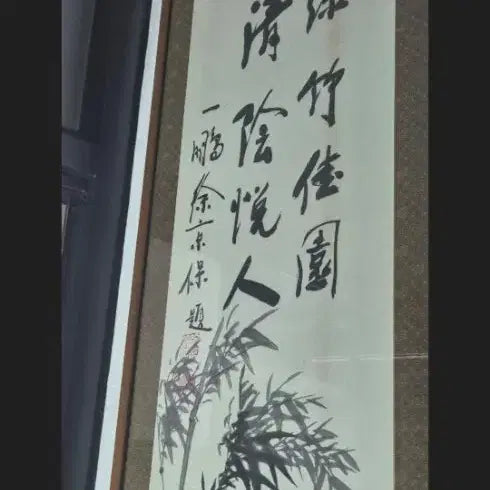 綠竹佳園
清陰悅人
一鵬徐京保題